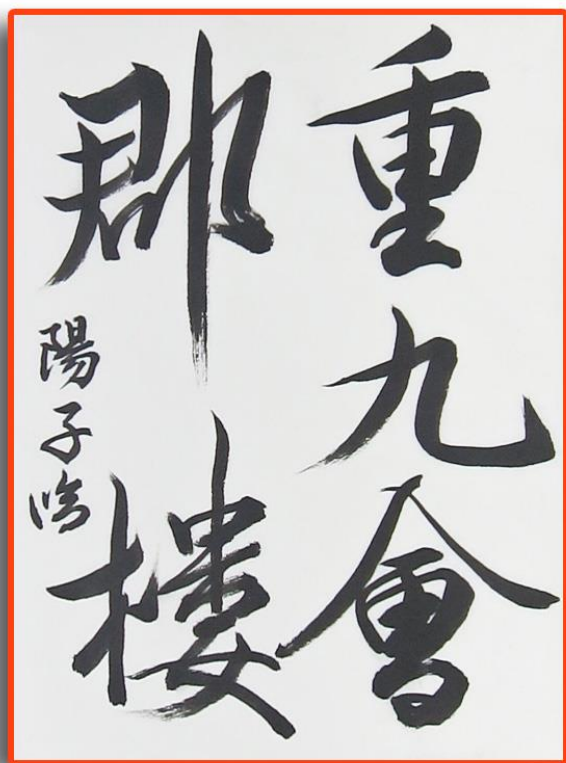 重九會
郡樓
陽子吟